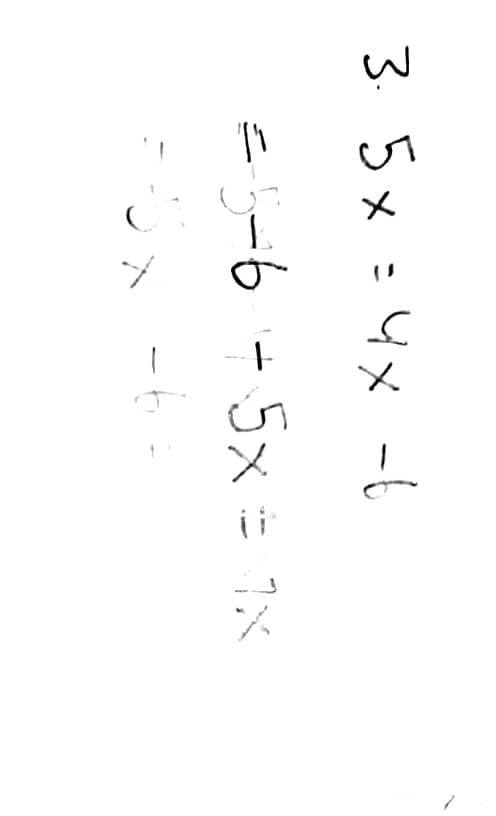 3. 5x = 4x -6
= 5-6 + 5x = 7x
= 5x -6 =